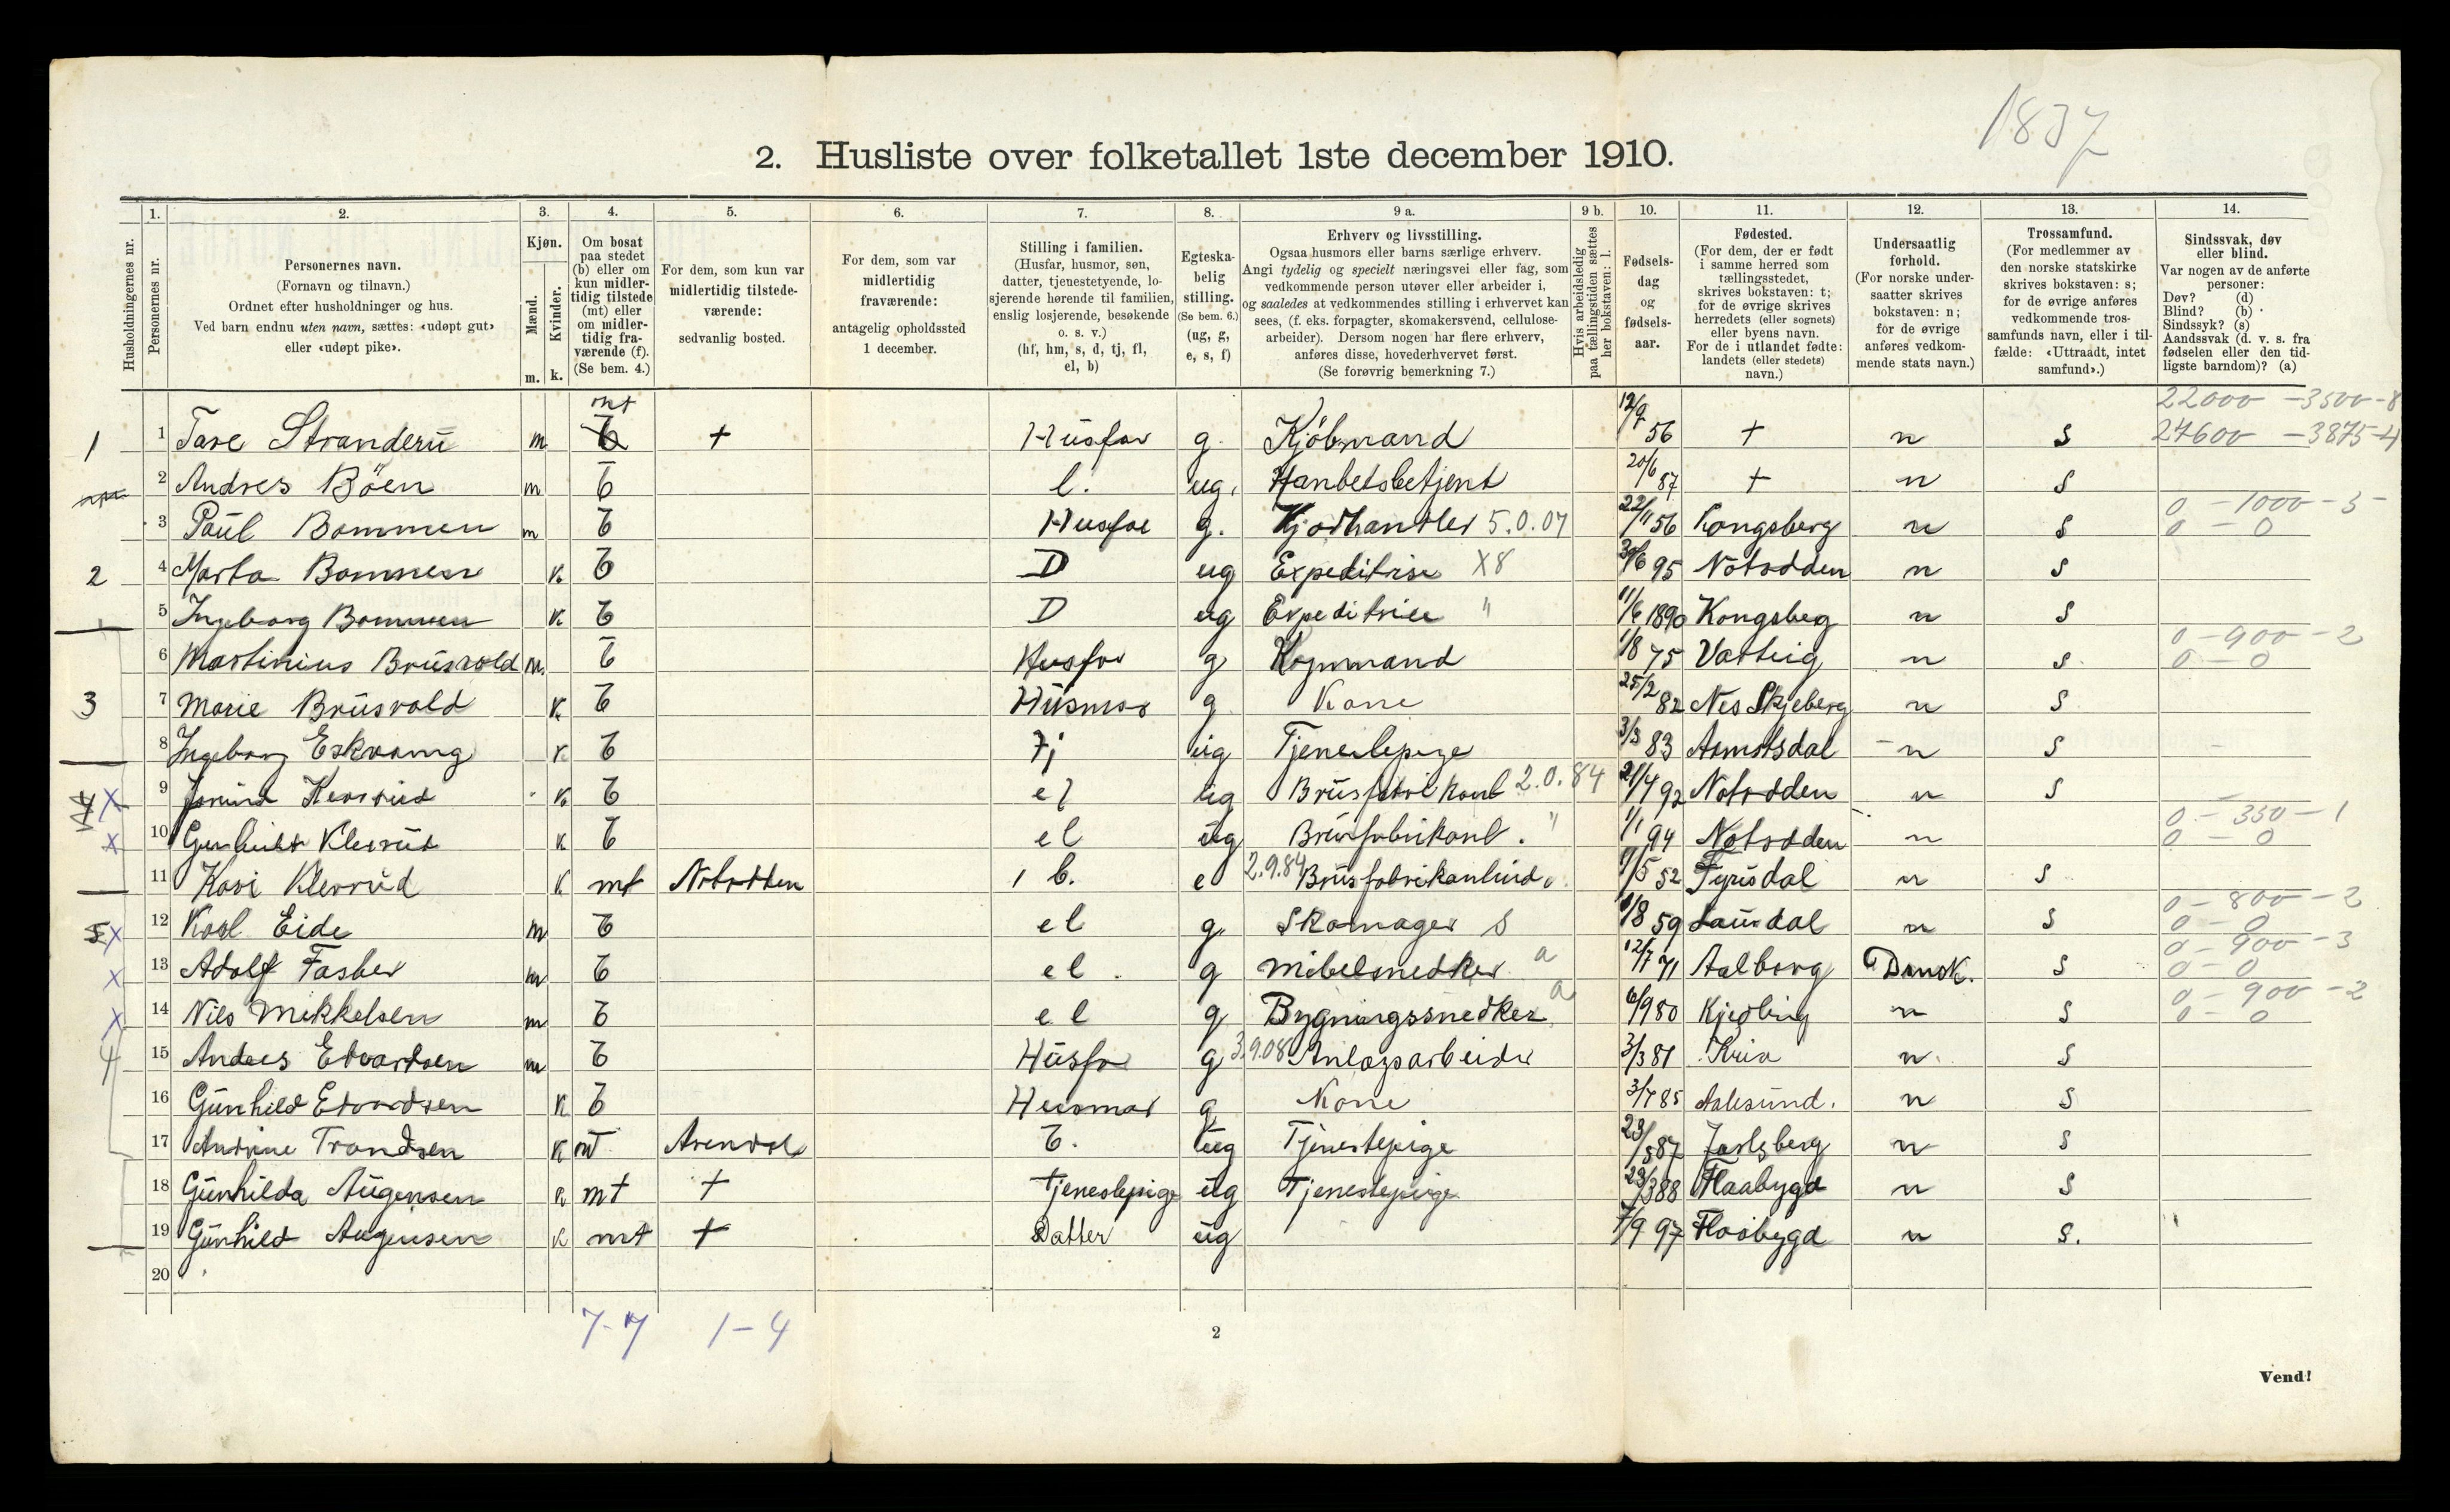 1837
2. Husliste over folketallet 1ste december 1910.
Husholdningernes nr.
1. Personernes nr.
2. Personernes navn. (Fornavn og tilnavn.) Ordnet efter husholdninger og hus. Ved barn endnu uten navn, sættes: «udøpt gut» eller «udøpt pike».
3. Kjøn. Mænd. m. Kvinder. k.
4. Om bosat paa stedet (b) eller om kun midlertidig tilstede (mt) eller om midlertidig fraværende (f). (Se bem. 4.)
5. For dem, som kun var midlertidig tilstedeværende: sedvanlig bosted.
6. For dem, som var midlertidig fraværende: antagelig opholdssted 1 december.
7. Stilling i familien. (Husfar, husmor, søn, datter, tjenestetyende, losjerende hørende til familien, enslig losjerende, besøkende o. s. v.) (hf, hm, s, d, tj, fl, el, b)
8. Egteskabelig stilling. (Se bem. 6.) (ug, g, e, s, f)
9 a. Erhverv og livsstilling. Ogsaa husmors eller barns særlige erhverv. Angi tydelig og specielt næringsvei eller fag, som vedkommende person utøver eller arbeider i, og saaledes at vedkommendes stilling i erhvervet kan sees, (f. eks. forpagter, skomakersvend, cellulosearbeider). Dersom nogen har flere erhverv, anføres disse, hovederhvervet først. (Se forøvrig bemerkning 7.)
9 b. Hvis arbeidsledig paa tællingstiden sættes her bokstaven: l.
10. Fødselsdag og fødselsaar.
11. Fødested. (For dem, der er født i samme herred som tællingsstedet, skrives bokstaven: t; for de øvrige skrives herredets (eller sognets) eller byens navn. For de i utlandet fødte: landets (eller stedets) navn.)
12. Undersaatlig forhold. (For norske undersaatter skrives bokstaven: n; for de øvrige anføres vedkommende stats navn.)
13. Trossamfund. (For medlemmer av den norske statskirke skrives bokstaven: s; for de øvrige anføres vedkommende trossamfunds navn, eller i tilfælde: «Uttraadt, intet samfund».)
14. Sindssvak, døv eller blind. Var nogen av de anførte personer: Døv? (d) Blind? (b) Sindssyk? (s) Aandssvak (d. v. s. fra fødselen eller den tidligste barndom)? (a)
22000 - 3500 - 8
1 1 Tare Stranderu m mt b t Husfar g. Kjöbmand 12/9 56 t n s 27600 - 3875 - 4
2 Andres Böen m b l. ug. Hanbetsbetjent 20/6 87 t n s
0 - 1000 - 5
3 Paul Bommen m b Husfar g. Kjodhantler 5.0.07 22/11 56 Kongsberg n s 0 - 0
2 4 Marta Bommen k b D ug Expeditrise X8 30/6 95 Notodden n s
5 Ingeborg Bommen k b D ug Expeditrise " 11/6 1890 Kongsberg n s
0 - 900 - 2
6 Martinius Brusvold m b Husfar g Kopmand 1/8 75 Varteig n s 0 - 0
3 7 Marie Brusvold k b Husmor g Kone 25/2 82 Nes Skjeberg n s
8 Ingeborg Eskvamg k b Tj ug Tjenestepige 3/3 83 Asmotsdal n s
9 k b el ug Brusfabrikant 2.0.84 21/4 92 Notodden n s
0 - 350 - 1
10 Gunhild Klevrud k b el ug Brusfabrikant. " 1/1 94 Notodden n 0 - 0
11 Kari Klevrud k mt Notodden b. e 2.9.84 1/5 52 Tyrisdal n s
0 - 800 - 2
5x 12 Karl Eide m b el g Skomager s 1/8 59 Laurdal n s 0 - 0
0 - 900 - 3
x 13 Adolf Fasber m b el. g Möbelsnedker a 12/7 71 Aalborg Dansk. s 0 - 0
0 - 900 - 2
x 14 Nils Mikkelsen m b el g Bygningssnedker a 6/9 80 Kjedling n s 0 - 0
4 15 Anders Edvartsen m b Husfar g 3.9.08 Anlægsarbeider 3/3 81 Kria n. s
16 Gunhild Edvardsen k b Husmor g Kone 3/7 85 Aalesund. n s
17 Andrine Trondsen k mt Arendal b. ug Tjenestepige 23/5 87 Jarlsberg n s
18 Gunhilda Augensen k mt t Tjenestepige ug Tjenestepige 23/3 88 Flaabygd n s
19 Gunhild Augensen k mt t Datter ug 7/9 97 Flaabygd n s.
20
7-7 1-4
2
Vend!